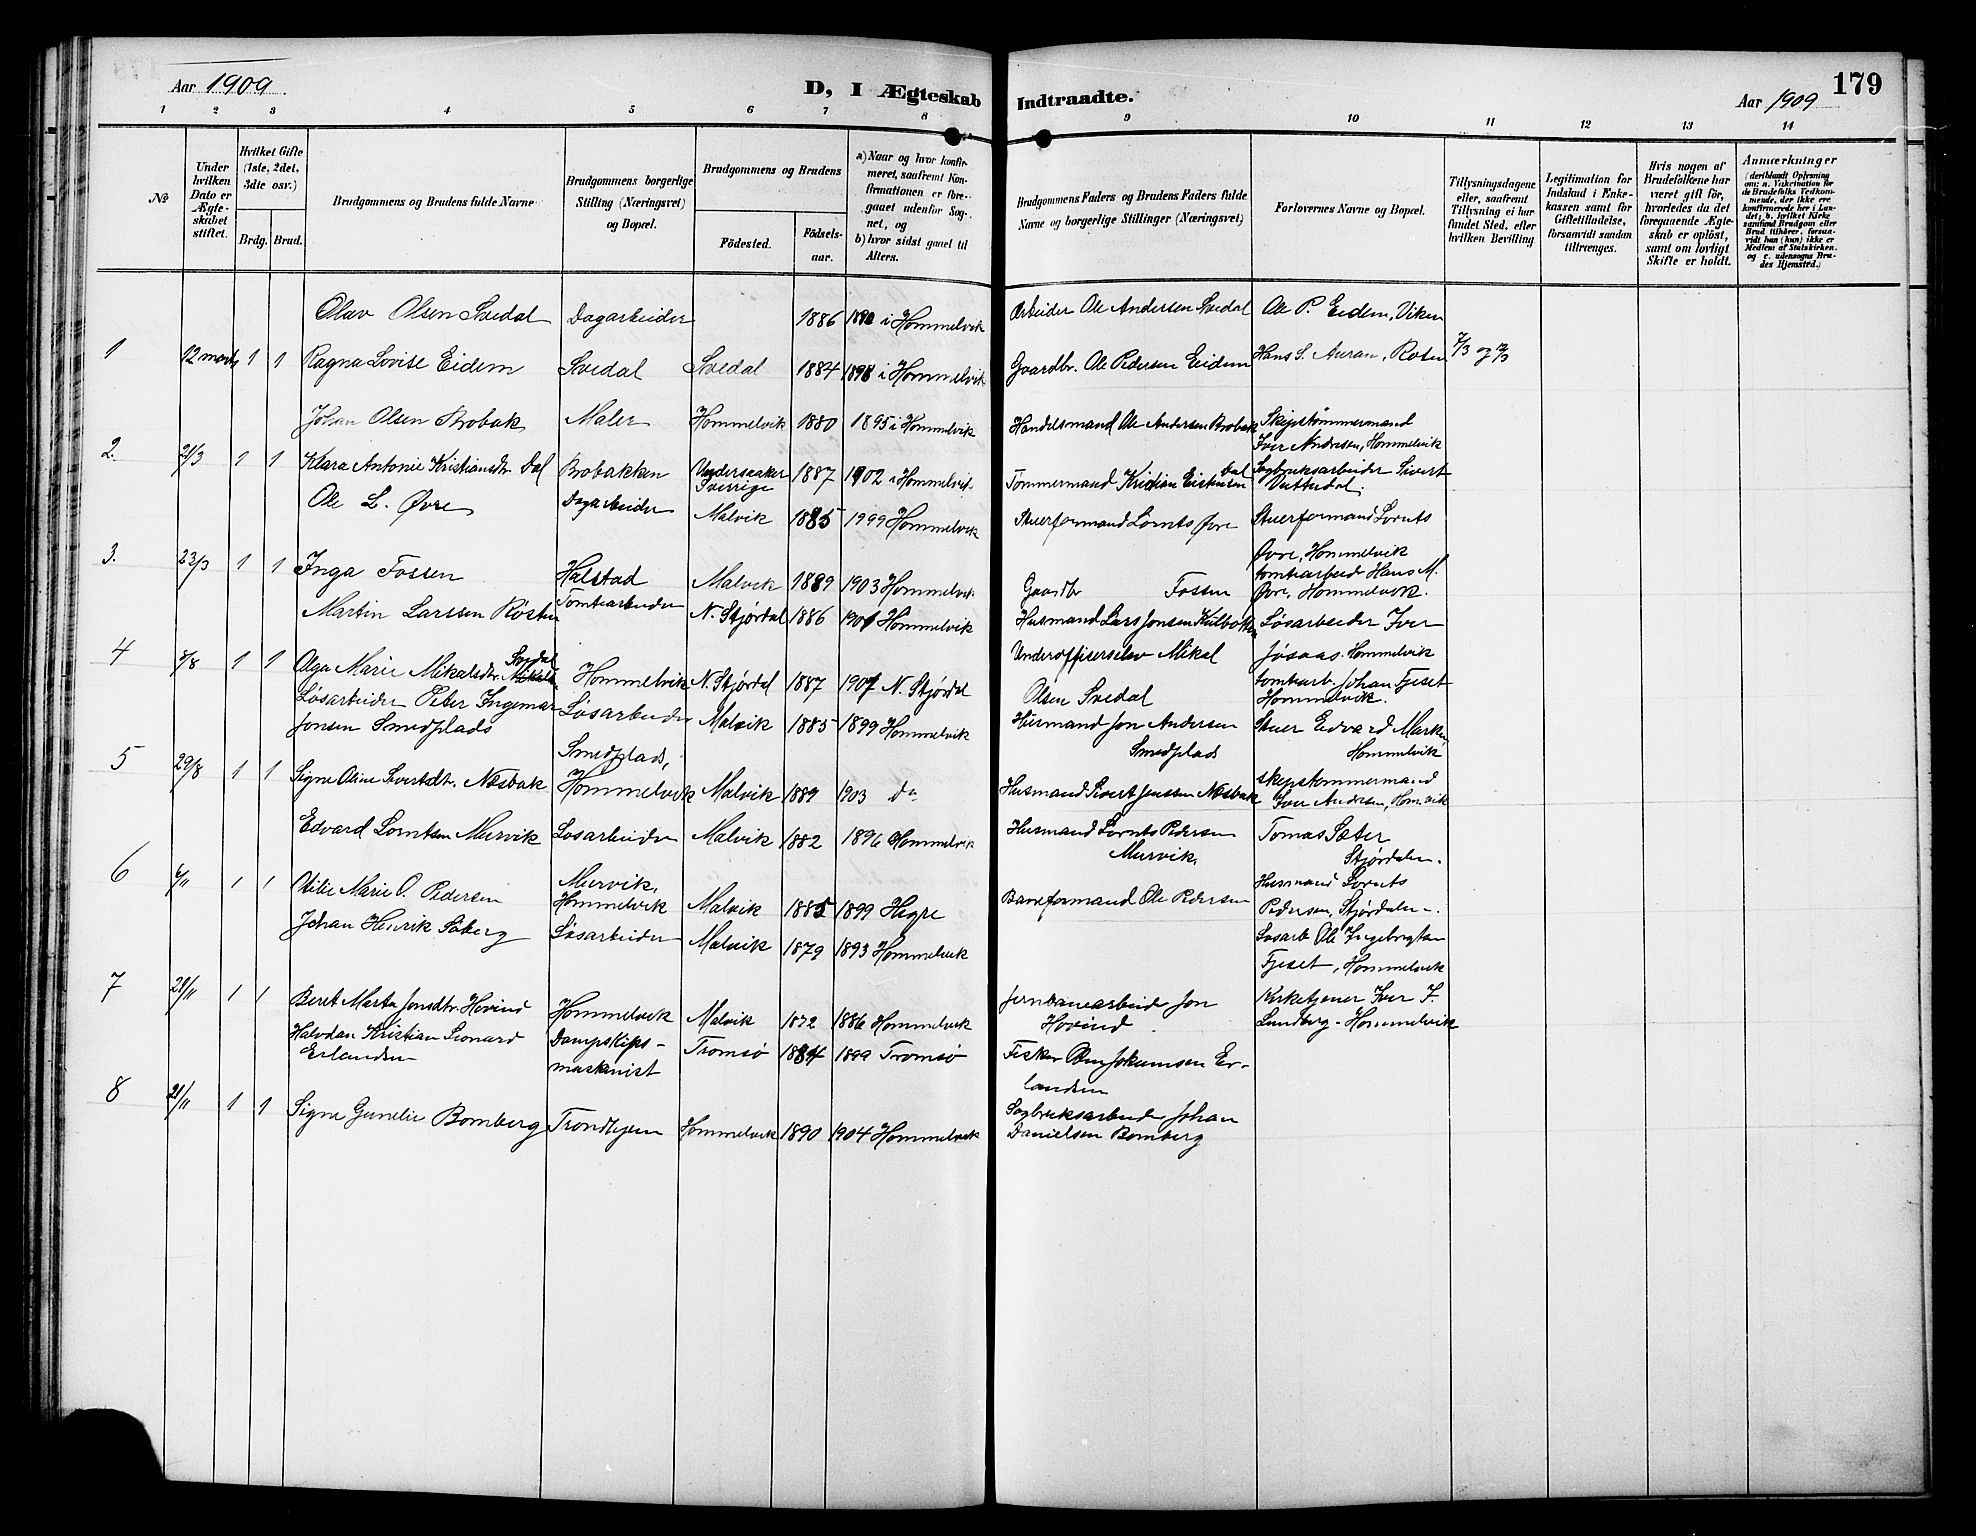 Aar 1909.
D, I Ægteskab Indtraadte.
Aar 1909
179
1 2 3 4 5 6 7 8 9 10 11 12 13 14
№
Under hvilken Dato er Ægteskabet stiftet.
Hvilket Gifte (1ste, 2det, 3die osv.)
Brdg. Brud.
Brudgommens og Brudens fulde Navne
Brudgommens borgerlige Stilling (Næringsvei) og Bopæl.
Brudgommens og Brudens
Födested.
Födselsaar.
a) Naar og hvor konfirmeret, saafremt Konfirmationen er foregaaet udenfor Sognet, og
b) hvor sidst gaaet til Alters.
Brudgommens Faders og Brudens Faders fulde Navne og borgerlige Stillinger (Næringsvei)
Forlovernes Navne og Bopæl.
Tillysningsdagene eller, saafremt Tillysning ei har fundet Sted, efter hvilken Bevilling.
Legitimation for Indskud i Enkekassen samt for Giftetilladelse, forsaavidt saadan tiltrænges.
Hvis nogen af Brudefolkene har været gift för, hvorledes da det foregaaende Ægteskab er oplöst, samt om lovligt Skifte er holdt.
Anmærkninger (deriblandt Oplysning om: a. Vakcination for de Brudefolks Vedkommende, der ikke ere konfirmerede her i Landet; b. hvilket Kirkesamfund Brudgom eller Brud tilhører, forsaavidt han (hun) ikke er Medlem af Statskirken, og c. udensogns Brudes Hjemsted.)
Olav Olsen Svedal Dagarbeider 1886 i Hommelvik Arbeider Ole Andersen Svedal Ole P. Eidem, Viken
1 12 marts 1 1 Ragna Lovise Eidem Svedal Svedal 1884 1898 i Hommelvik Gaardbr. Ole Pedersen Eidem Hans S. Auran, 7/3 og
Johan Olsen Brobak Maler Hommelvik 1880 1895 i Hommelvik Handelsmand Ole Andersen Brobak Skipstömmermand
Iver Andresen, Hommelvik
2. 21/3 1 1 Klara Antonie Kristiansdr. Dal Brobakken Undersaaker Sverrige 1887 1902 i Hommelvik Tömmermand Kristian Dal Sagbruksarbeider Sivert
Ole L. Øvre Dagarbeider Malvik 1885 1999 Hommelvik Stuerformand Lornts Øvre Stuerformand Lornts
Øvre, Hommelvik
3. 23/3 1 1 Inga Fossen Halstad Malvik 1889 1903 Hommelvik Gaardbr Fossen tomtearbeid Hans M.
Øvre, Hommelvik.
Martin Larssen Tomtearbeider N. Stjørdal 1886 1901 Hommelvik Husmand Lars Jonsen Løsarbeider Iver
4 /8 1 1 Olga Marie Mikalsdtr. Svedal Hommelvik N. Stjørdal 1887 1901 N. Stjørdal Underofficerselev Mikal Olsen Svedal Jøsaas Hommelvik
tomtarb. Johan Fjeset Hommelvik.
Løsarbeider Peter Ingemar Jonsen Smedplads Løsarbeider Malvik 1885 1899 Hommelvik Husmand Jon Andersen Smedplads Stuer Edvard Hommelvik
5 29/8 1 1 Signe Oline Sivertsdtr. Næsbak Smedplads, Hommelvik Malvik 1889 1903 do Husmand Sivert Jenssen Næsbak skipstømmermand
Iver Andersen, Homvik
Edvard Lorntsen Mervik Løsarbeider Malvik 1882 1896 Hommelvik Husmand Lornts Pedersen Mervik. Tomas Sæter
Stjørdalen.
6 6/11 1 1 Otilie Marie O. Pedersen Mervik, Hommelvik Malvik 1885 1899 Hegre Baneformand Ole Pedersen Husmand Lornts
Pedersen, Stjørdalen.
Johan Henrik Soberg Løsarbeider Malvik 1879 1893 Hommelvik Løsarb Ole Ingebrigtsen
Fjeset, Hommelvik
7 28/11 1 1 Beret Marta Jonsdtr. Hovind Hommelvik Malvik 1872 1886 Hommelvik Jernbanearbeider Jon Hovind Kirketjener Iver I.
Lundberg - Hommelvik
Halvdan Kristian Leonard Erlandsen Dampskips-maskinist Tromsø 1884 1899 Tromsø Fisker Jokumsen Er-landsen
8 28/11 1 1 Signe Gunelie Bomberg Trondhjem Hommelvik 1890 1904 Hommelvik Sagbruksarbeider Johan
Danielsen Bomberg